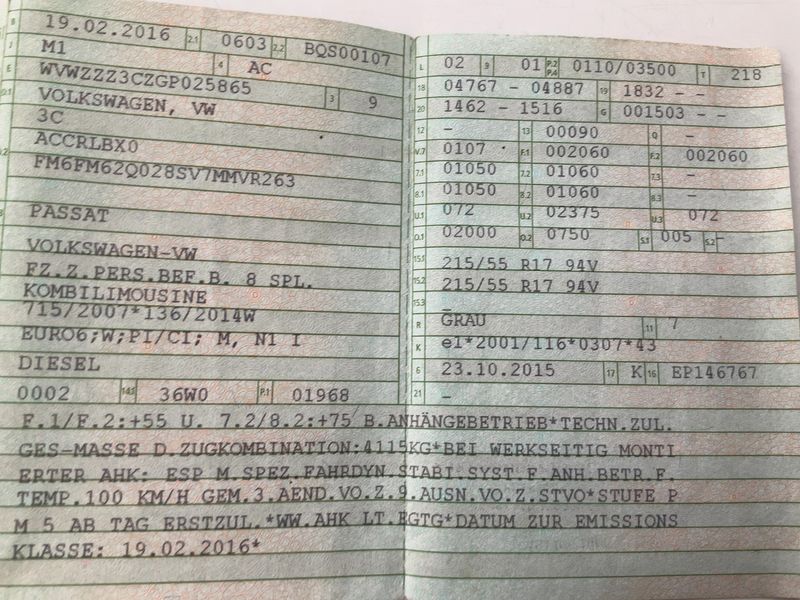 B 19.02.2016 2.1 0603 2.2 BQS00107
J M1 4 AC
E WVWZZZ3CZGP025865 3 9
D.1 VOLKSWAGEN, VW
3C
ACCRLBX0
D.2 FM6FM62Q028SV7MMVR263
PASSAT
VOLKSWAGEN-VW
FZ.Z.PERS.BEF.B. 8 SPL.
KOMBILIMOUSINE
715/2007*136/2014W
EURO6;W;PI/CI; M, N1 I
DIESEL
0002 14.1 36W0 P.1 01968
L 02 9 01 P.2 P.4 0110/03500 T 218
18 04767 - 04887 19 1832 - -
20 1462 - 1516 G 001503 - -
12 - 13 00090 Q -
V.7 0107 F.1 002060 F.2 002060
7.1 01050 7.2 01060 7.3 -
8.1 01050 8.2 01060 8.3 -
U.1 072 U.2 02375 U.3 072
O.1 02000 O.2 0750 S.1 005 S.2 -
15.1 215/55 R17 94V
15.2 215/55 R17 94V
15.3 -
R GRAU 11 7
K e1*2001/116*0307*43
6 23.10.2015 17 K 16 EP146767
21 -
F.1/F.2:+55 U. 7.2/8.2:+75 B.ANHÄNGEBETRIEB*TECHN.ZUL.
GES-MASSE D.ZUGKOMBINATION:4115KG*BEI WERKSEITIG MONTI
ERTER AHK: ESP M.SPEZ.FAHRDYN.STABI.SYST.F.ANH.BETR.F.
TEMP.100 KM/H GEM.3.AEND.VO.Z.9.AUSN.VO.Z.STVO*STUFE P
M 5 AB TAG ERSTZUL.*WW.AHK LT.EGTG*DATUM ZUR EMISSIONS
KLASSE: 19.02.2016*